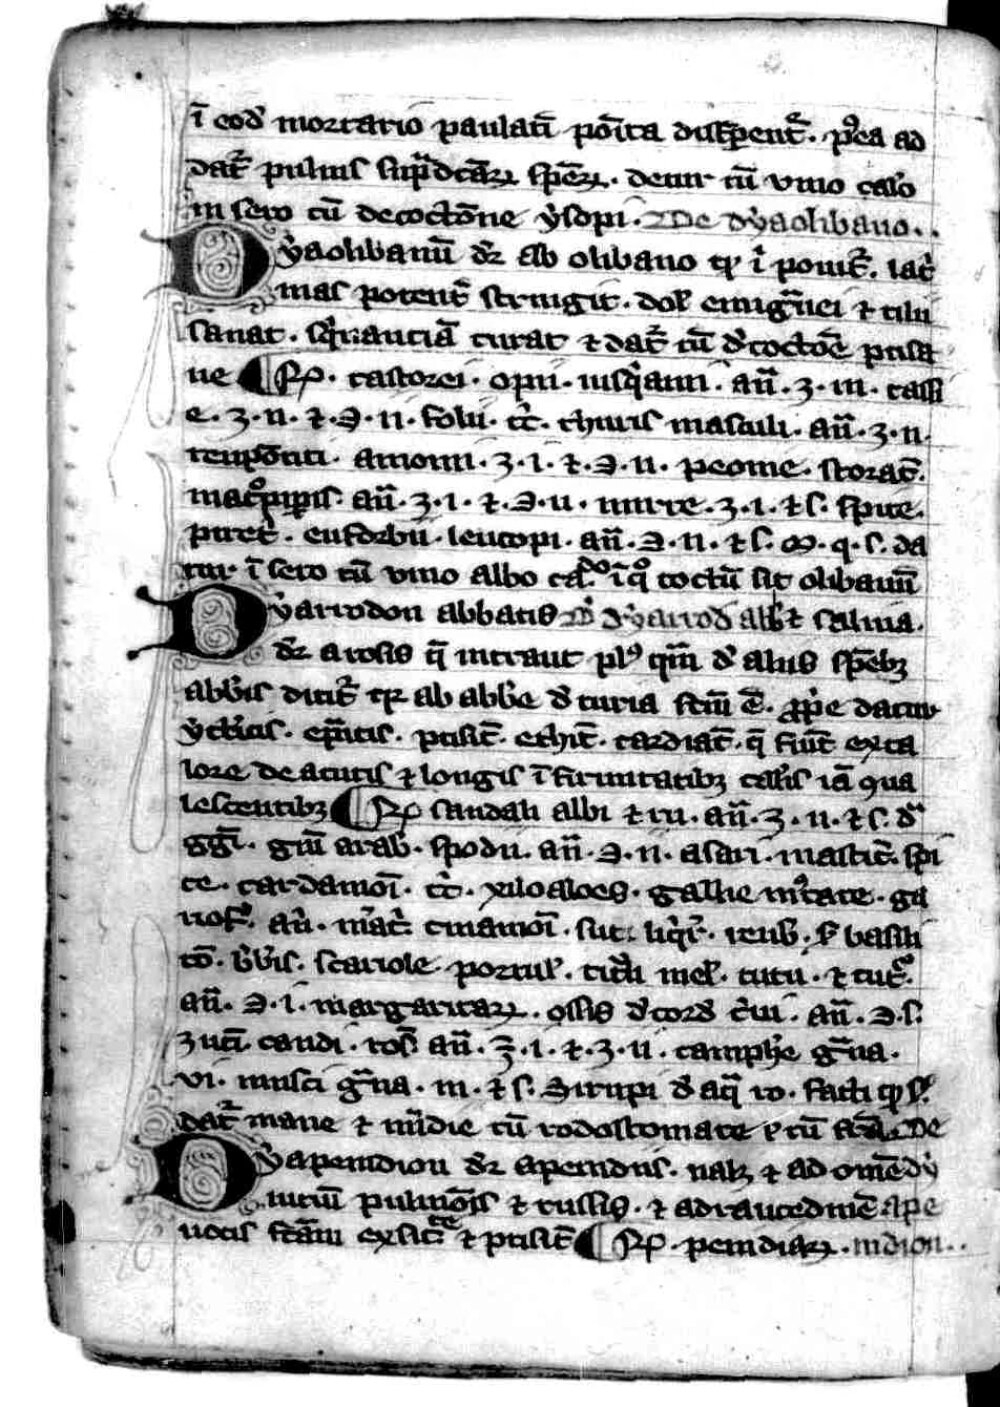 ī eod̄ mortario paulatī poīta disꝑentᷣ. pꝰea ad
datᷣ puluis sup̄dcāꝝ spēꝝ. detur cū vino cal̓o
in sero cū decoctōne ẏsopi. De dẏaolibano..
Dẏaolibanū dꝛ ab olibano qꝛ ī ponitᷣ. lac̓
mas potentᷣ stringit. dol̓ emigᷓnei ⁊ timī
sanat. sqͥnanciā curat ⁊ datᷣ cū d̓coctōe ptisa
ne ¶ ℞. castorei. opii. iusqͥami. an̄. ʒ. iii. cassi
e. ʒ. ii. ⁊. ℈. ii. folii. cͨ. thuris masculi. an̄. ʒ. ii.
reupōtici. amomi. ʒ. i. ⁊. ℈. ii. peonie. storac̄.
macᷣopiꝑis. an̄. ʒ. i. ⁊. ℈. ii. mirre. ʒ. i. ⁊ s. spice.
piret̓. euforbii. leucopi. an̄. ℈. ii. ⁊ s. m. q. s. da
tur ī sero cū vino albo ca.ͦ ī qͦ coctū sit olibanū
Dẏarrodon abbatis D̓ dẏarrod̄ abb̄ ⁊ salina.
dꝛ a rosis q̄ intrant plꝰ qͣm d̓ aliis spēbꝫ
abb̓is dicitᷣ qꝛ ab abb̓e d̓ curia fcm̄ ē. ꝓpͥe datur
ẏct̓icis. ep̄ticis. ptisic̄. ethic̄. cardiac̄. q̄ fiūt ex ca
lore de acutis ⁊ longis īfirmitatibꝫ cal̓is iā ꝯua
lescentibꝫ ¶ ℞ sandali albi ⁊ ru. an̄. ʒ. ii. ⁊ s. dᷓ
ggī. gm̄i arab̓. spodii. an̄. ℈. ii. asari. mastic̄. spi
ce. cardamoī. cͨ. xiloaloes. gallie mᷤcate. ga
riof̓. an̄i. mͣc̓. cinamoī. suc. liqͥr̓. reub̓. s̓ basili
cō. b̓b̓is. scariole. portul̓. citͣli mel̓. cucu. ⁊ cuc̓.
an̄. ℈. i. margaritaꝝ. ossis d̓ cord̓ c̓ui. an̄. ℈. s.
ʒuci candi. ros̓ an̄. ℥. i. ⁊. ʒ. ii. camph̓e gͣna.
vi. musci gͣna. iii. ⁊ s. Sirupi d̓ aq̄ ro. facti qͥ s̓.
datᷣ mane ⁊ m̓idie cū rodostomate ⁊ cū fc̄a. De
Dẏapenidion dꝛ a penidiis. ualꝫ ⁊ ad oīnē dẏ
iuciū pulmōis ⁊ tussis. ⁊ ad raucedinē ape
uocis fcām ex sicc̓te ⁊ ptisic̄ ¶ ℞. penidiaꝝ. nidion..